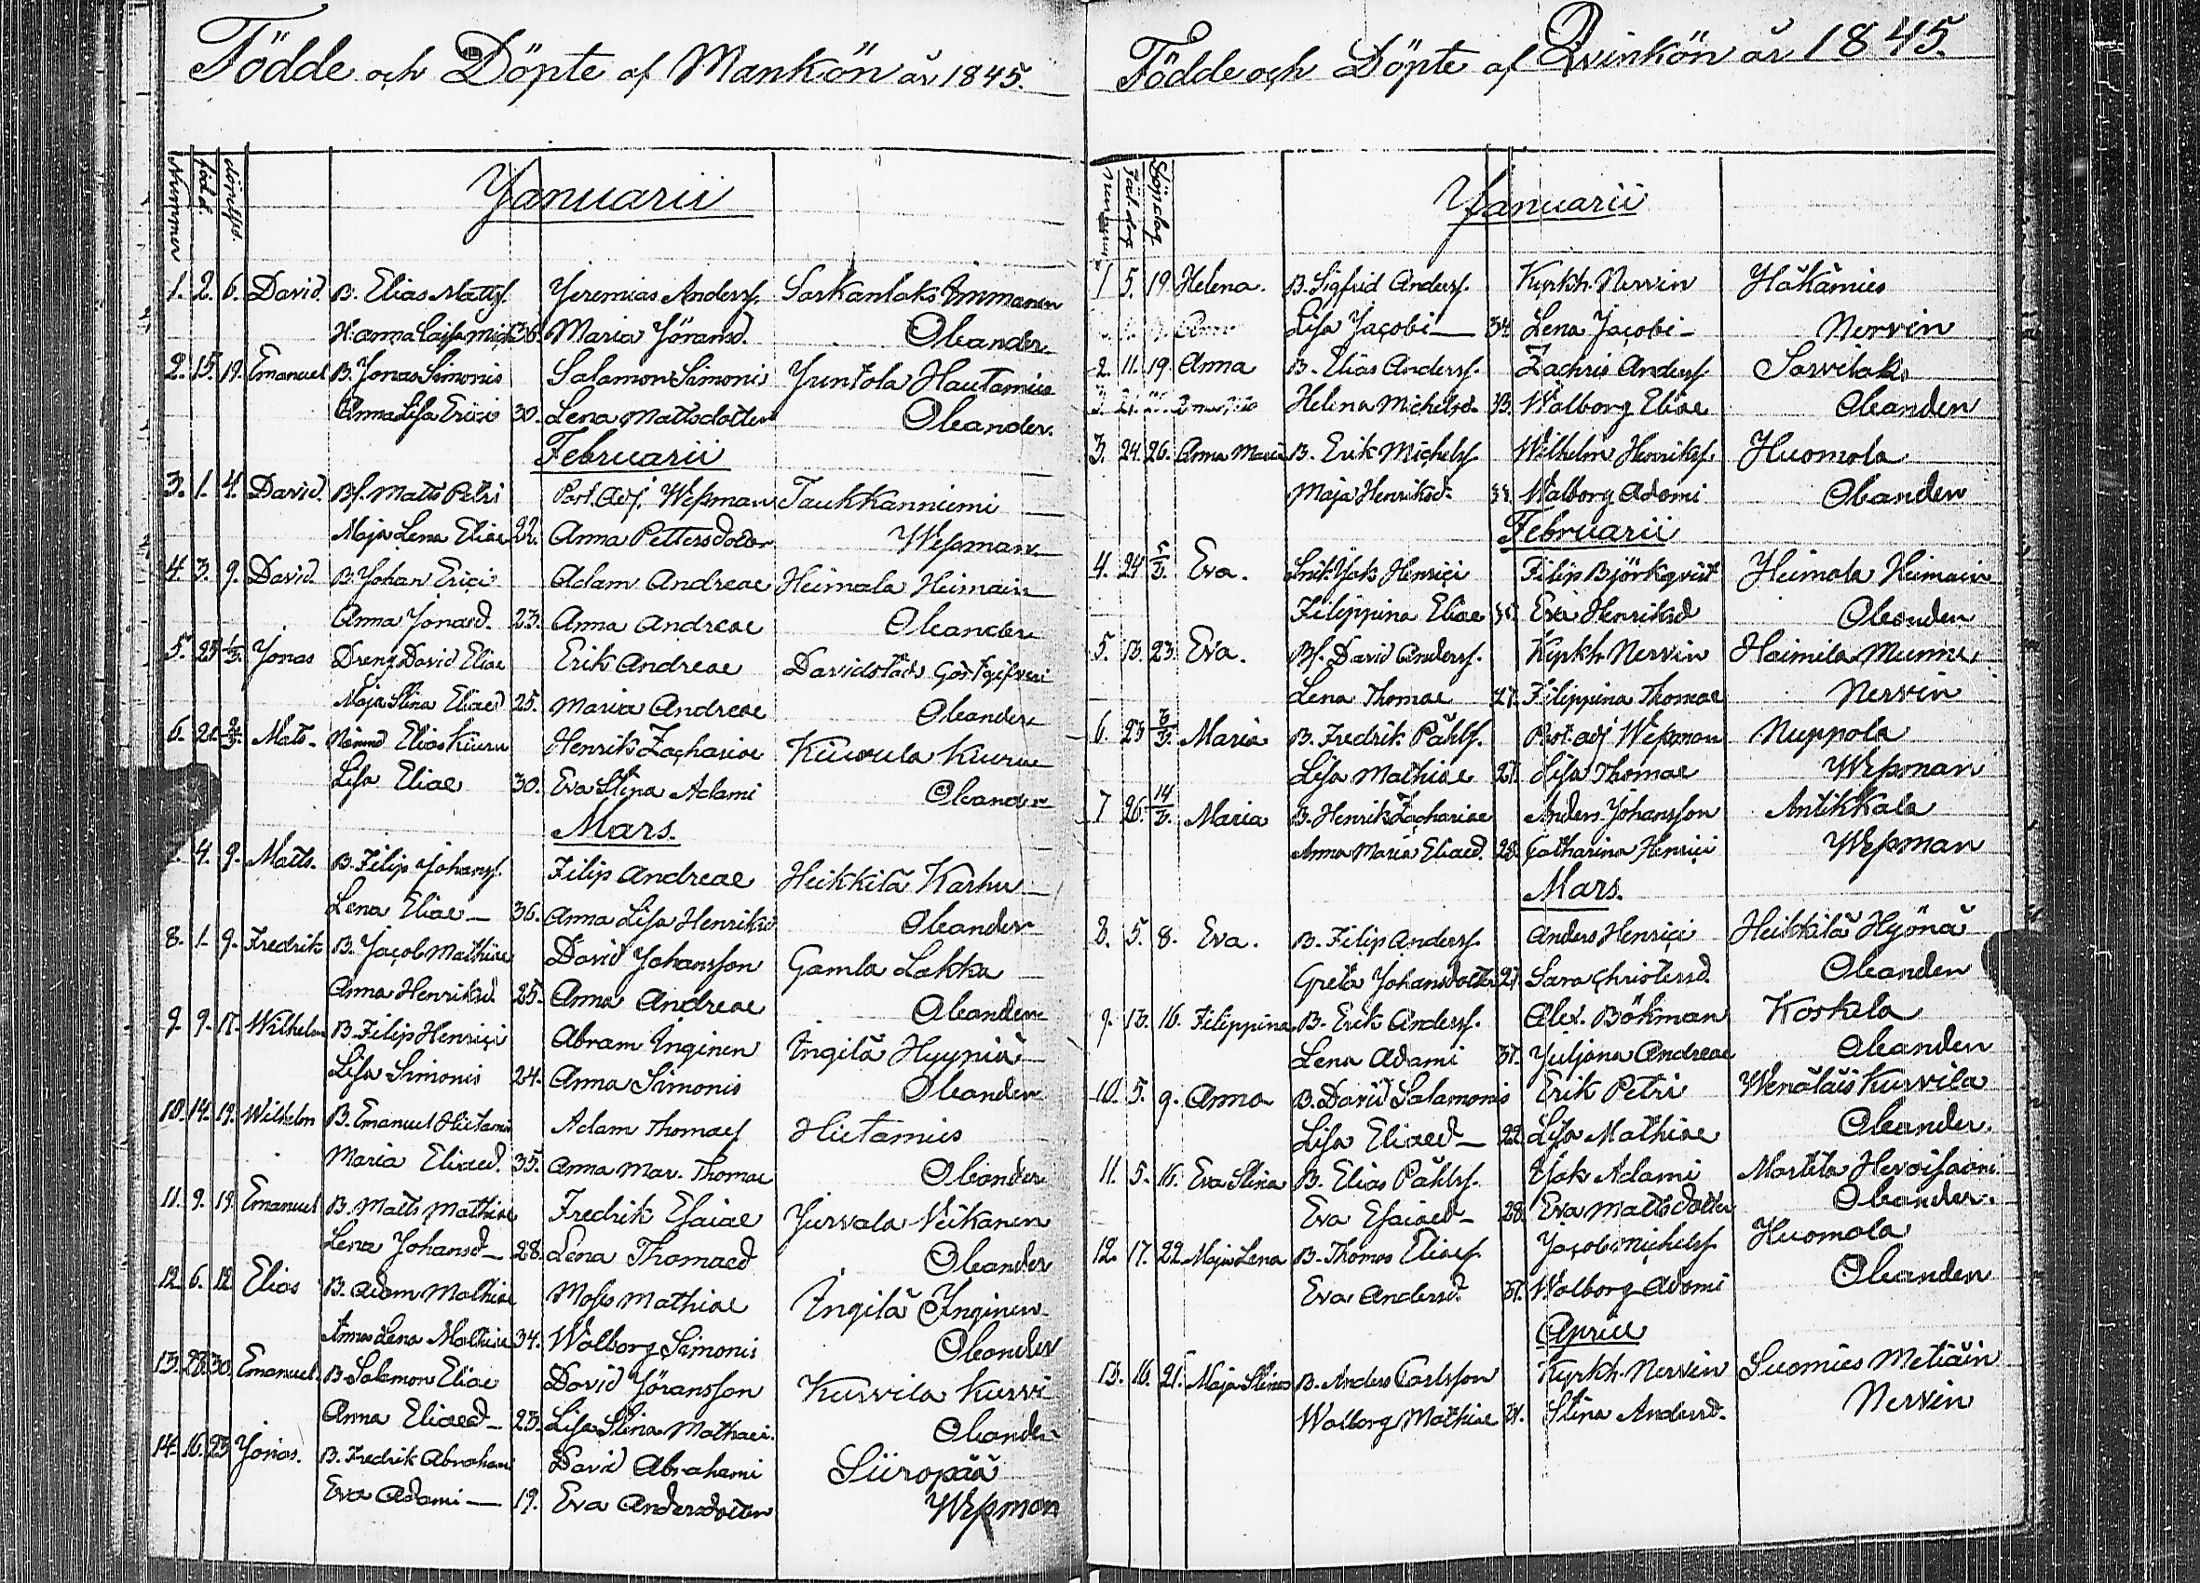 Födde och Döpte af Mankön år 1845.
Nummer född. döpelsed.
Januarii
1. 2. 6. David. B. Elias Mattss. Jeremias Anderss. Sarkanlaks Immonen
Hanna Caisa Mich 36. Maria Jöransd. Oleander.
2. 15. 19. Emanuel B. Jonas Simonis Salamon Simonis Juntola Hautamies
Anna Lisa Erici 30. Lena Mattsdotter Oleander.
Februarii
3. 1. 4. David. Bs. Matts Petri Past. Adj. Wessman Taukkanniemi
Maja Lena Eliae 22. Anna Pettersdotter Wessman
4. 3. 9. David. B. Johan Erici Adam Andreae Heimala Heimain
Anna Jonaed. 23. Anna Andreae Oleander
5. 25 1/3. Jonas Dreng David Eliae Erik Andreae Davidstads Gästgifveri
Maja Stina Eliaed 25. Maria Andreae Oleander
6. 21. 2/3. Mats. Nämnd Elias Kiuru Henrik Zachariae Kiurula Kiuru
Lisa Eliae 30. Eva Stina Adami Oleander
Mars.
4. 9. Matts. B. Filip Johanss. Filip Andreae Heikkilä Karhu
Lena Eliae 36. Anna Lisa Henriksd Oleander
8. 1. 9. Fredrik B. Jacob Mathiae David Johansson Gamla Lakka
Anna Henriksd. 25. Anna Andreae Oleander
9. 9. 17. Wilhelm B. Filip Henrici Abram Inginen Ingilä Hyyniä
Lisa Simonis 24. Anna Simonis Oleander
10. 14. 19. Wilhelm B. Emanuel Hietamies Adam Thomaes Hietamies
Maria Eliaed. 35. Anna Mar. Thomae Oleander
11. 9. 19. Emanuel B. Matts Mathiae Fredrik Esaiae Jurvala Veikanen
Lena Johansd 28. Lena Thomaed Oleander
12. 6. 12 Elias B. Adam Mathiae Moses Mathiae Ingilä Inginen
Anna Lena Mathiae 34. Walborg Simonis Oleander
13. 28. 30. Emanuel. B. Salamon Eliae David Jöransson Kurvila Kurvi
Anna Eliaed 23. Lisa Stina Mathaei. Oleander
14. 16. 23 Jonas. B. Fredrik Abrahami David Abrahami Siiropää
Eva Adami 19. Eva Andersdotter Wessman
Födde och Döpte af Qvinkön år 1845.
Nummer Föd. dag Döpedag
Januarii
1 5. 19. Helena. B. Sigfrid Anderss. Kyrkh. Nervin Häkämies
Lisa Jacobi 34. Lena Jacobi Nervin
2. 11. 19. Anna B. Elias Anderss. Zachris Anderss. Sarvilaks
Helena Michelsd. 33. Walborg Eliae Oleander
3. 24. 26. Anna Maria B. Erik Michelss. Wilhelm Henrikss. Huomola
Maja Henriksd. Walborg Adami Oleander
Februarii
4. 24 Eva. Jak Henrici Filip Björkqvist Heimala Heimain
Filippina Eliae Eva Henriksd Oleander
5. 13. 23. Eva. Bs. David Anderss. Kyrkh. Nervin Haimila Munne
Lena Thomae 27. Filippina Thomae Nervin
6. 23 Maria B. Fredrik Påhlss. Past. adj Wessman Nuppola
Lisa Mathiae 27. Lisa Thomae Wessman
7 26. 14/3. Maria B. Henrik Zachariae Anders Johansson Antikkala
Anna Maria Eliaed. 28. Catharina Henrici Wessman
Mars.
8. 5. 8. Eva. B. Filip Anderss. Anders Henrici Heikkilä Hyönä
Greta Johansdotter 27. Sara Christersd. Oleander
9. 13. 16. Filippina B. Erik Anderss. Alex. Bökman Koskela
Lena Adami 37. Juljana Andreae Oleander
10. 5. 9. Anna B. David Salamonis Erik Petri Wenäläis Kurvila
Lisa Eliaed 22. Lisa Mathiae Oleander.
11. 5. 16. Eva Stina B. Elias Påhlss. Isak Adami Marttila
Eva Esaiaed 28. Eva Mattsdotter Oleander.
12. 17. 22. Maja Lena B. Thomas Eliaes. Jacob Michelss. Huomola
Eva Andersd. 37. Walborg Adami Oleander
Aprill
13. 16. 21. Maja Stina B. Anders Carlsson Kyrkh. Nervin Suomies Metiäin
Walborg Mathiae Stina Andersd. Nervin